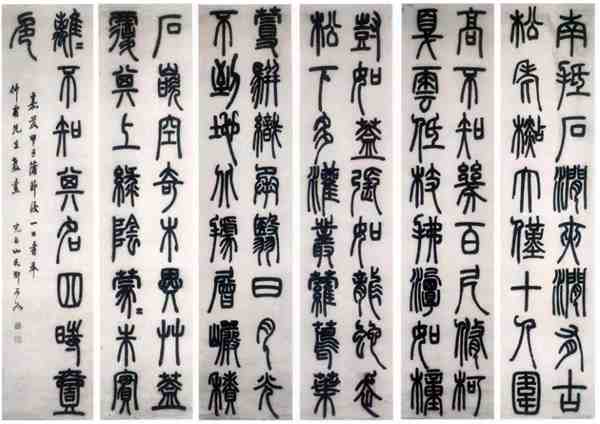 南抵石澗夾澗有古
松老杉大僅十人圍
高不知幾百尺脩柯
戛雲低枝拂潭如幢
如蓋張如龍蛇走
松下多灌叢蘿蔦葉
蔓駢織承翳日月光
不到地北據層巖積
石嵌空奇木異艸蓋
覆其上綠陰蒙〻朱實
離〻不知其名四時壹
色
嘉慶甲子蒲節後一日書奉
先生 完白山民鄧石如